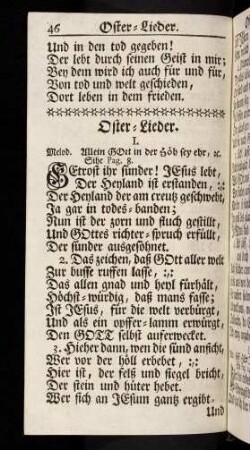 46 Oster-Lieder.
Und in den tod gegeben!
Der lebt durch seinen Geist in mir;
Bey dem wird ich auch für und für,
Von tod und welt geschieden,
Dort leben in dem frieden.
Oster-Lieder.
I.
Melod. Allein GOtt in der Höh sey ehr, ꝛc.
Sihe Pag. 8.
GEtrost ihr sünder! JEsus lebt,
Der Heyland ist erstanden, :,:
Der Heyland der am creutz geschwebt,
Ja gar in todes-banden;
Nun ist der zorn und fluch gestillt,
Und GOttes richter-spruch erfüllt,
Der sünder ausgesöhnet.
2. Das zeichen, daß GOtt aller welt
Zur busse ruffen lasse, :,:
Das allen gnad und heyl fürhält,
Höchst-würdig, daß mans fasse;
Ist JEsus, für die welt verbürgt,
Und als ein opffer-lamm erwürgt,
Den GOTT selbst auferwecket.
3. Hieher dann, wen die sünd ansicht,
Wer vor der höll erbebet, :,:
Hier ist, der felß und siegel bricht,
Der stein und hüter hebet.
Wer sich an JEsum gantz ergibt-
Und